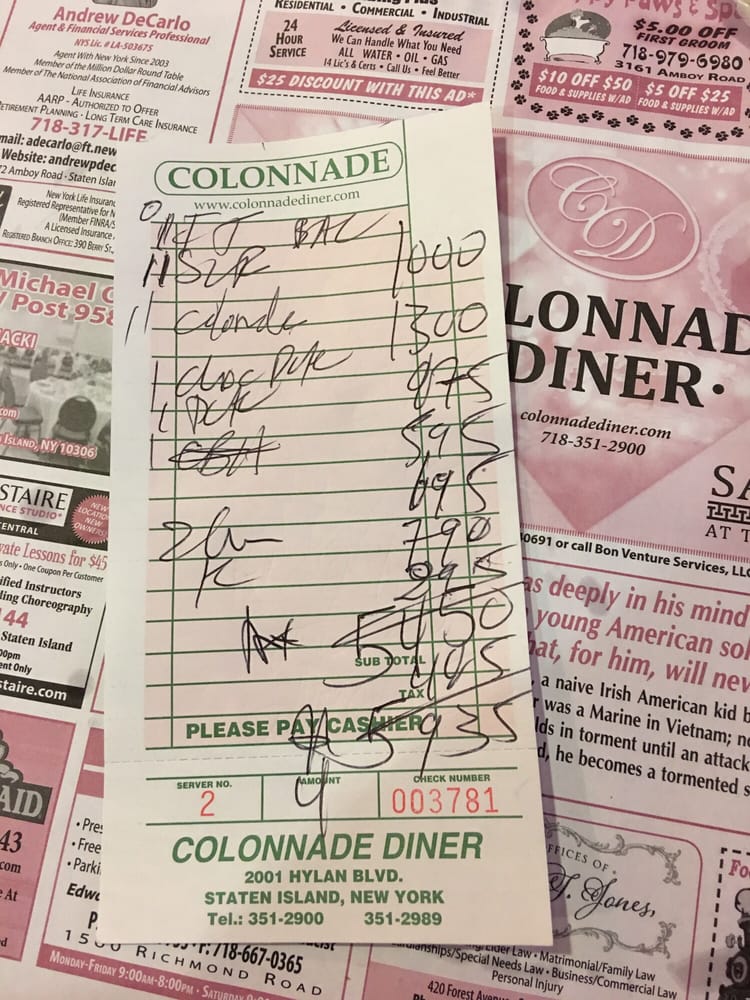 Andrew DeCarlo
Agent & Financial Services Professional
NYS Lic. # LA-503675
Agent With New York Since 2003
Member of the Million Dollar Round Table
Member of The National Association of Financial Advisors
LIFE INSURANCE
AARP - AUTHORIZED TO OFFER
RETIREMENT PLANNING · LONG TERM CARE INSURANCE
718-317-LIFE
mail: adecarlo@ft.new
Website: andrewpdec
72 Amboy Road · Staten Islan
New York Life Insuranc
Registered Representative for N
(Member FINRA/S
A Licensed Insurance
REGISTERED BRANCH OFFICE: 390 BERRY ST
RESIDENTIAL · COMMERCIAL · INDUSTRIAL
24 HOUR SERVICE
Licensed & Insured
We Can Handle What You Need
ALL WATER · OIL · GAS
14 Lic's & Certs · Call Us · Feel Better
$25 DISCOUNT WITH THIS AD*
Paws & Sp
$5.00 OFF
FIRST GROOM
718-979-6980
3161 AMBOY ROAD
$10 OFF $50
FOOD & SUPPLIES W/AD
$5 OFF $25
FOOD & SUPPLIES W/AD
COLONNADE
www.colonnadediner.com
BAC
1000
1300
1 choc
595
695
2
790
5450
SUB TOTAL
485
TAX
PLEASE PAY CASHIER
5935
SERVER NO.
2
AMOUNT
CHECK NUMBER
003781
COLONNADE DINER
2001 HYLAN BLVD.
STATEN ISLAND, NEW YORK
Tel.: 351-2900 351-2989
Michael
Post 958
ACKI
com)
ISLAND, NY 10306
STAIRE
NCE STUDIO
CENTRAL
NEW LOCATION
NEW OWNERS!
vate Lessons for $45
s Only · One Coupon Per Customer
ified Instructors
ding Choreography
44
Staten Island
00pm
ent Only
staire.com
AID
43
com
e At
• Pre
• Free
• Parki
Edw
P.
718-667-0365
RICHMOND ROAD
MONDAY-FRIDAY 9:00AM-8:00PM · SATURDAY
CD
LONNAD
DINER·
colonnadediner.com
718-351-2900
SA
AT T
0691 or call Bon Venture Services, LLC
as deeply in his mind
young American sol
hat, for him, will nev
a naive Irish American kid b
r was a Marine in Vietnam; no
lds in torment until an attack
d, he becomes a tormented s
FFICES OF
Jones,
Elder Law · Matrimonial/Family
nships/Special Needs Law · Business/Commercial Law
Personal Injury
420 Forest Aven